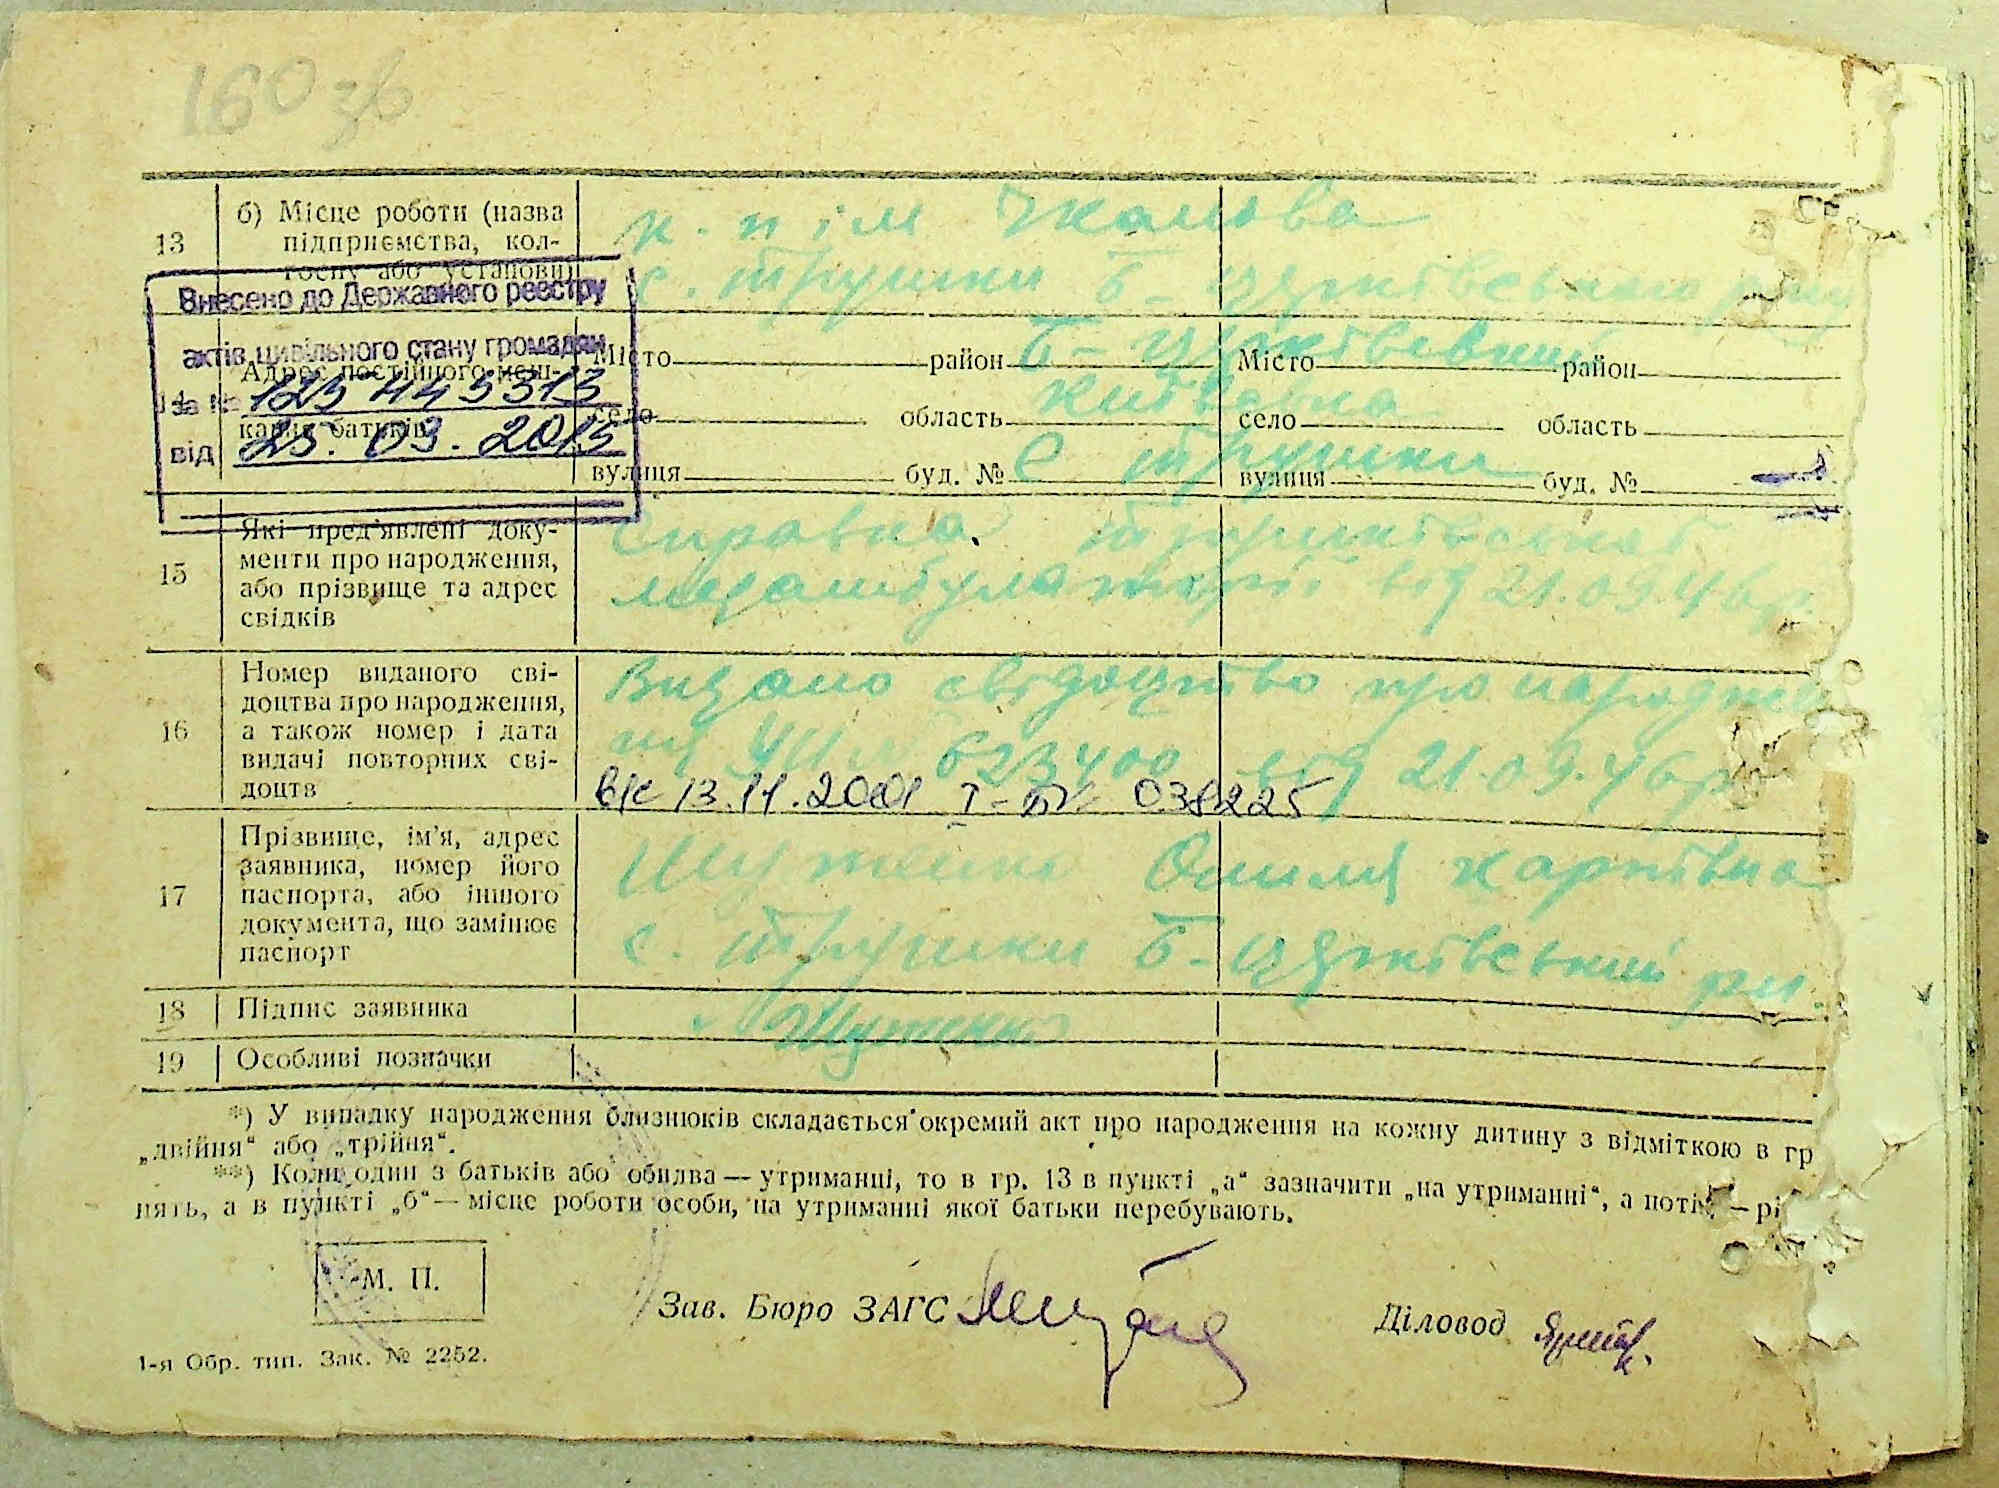 160 зв
13
б) Місце роботи (назва
підприємства, кол-
госпу або установи)
к-п ім Чкалова
с. Трушки Б-Церківського р-ну
Внесено до Державного реєстру
актів цивільного стану громадян
за №
від 25.03.2015
Адрес постійного меш-
кання батьків
Місто район Б-Церківський Місто район
село область Київська село область
вулиця буд. № с Трушки вулиця буд. №
15
Які пред'явлені доку-
менти про народження,
або прізвище та адрес
свідків
Справка Трушківської
медамбулаторії від 21.09.46р.
16
Номер виданого сві-
доцтва про народження,
а також номер і дата
видачі повторних сві-
доцтв
Видано свідоцтво про народжен
ня 623400 від 21.09.46р
13.11.2001 038225
17
Прізвище, ім'я, адрес
заявника, номер його
паспорта, або іншого
документа, що замінює
паспорт
Карпівна
с. Трушки Б-Церківський р-н.
18 Підпис заявника
19 Особливі позначки
*) У випадку народження близнюків складається окремий акт про народження на кожну дитину з відміткою в гр
„двійня“ або „трійня“.
**) Коли один з батьків або обидва — утриманці, то в гр. 13 в пункті „а“ зазначити „на утриманні“, а потім — рі
нять, а в пункті „б“ — місце роботи особи, на утриманні якої батьки перебувають.
М. П.
Зав. Бюро ЗАГС
Діловод
1-я Обр. тип. Зак. № 2252.